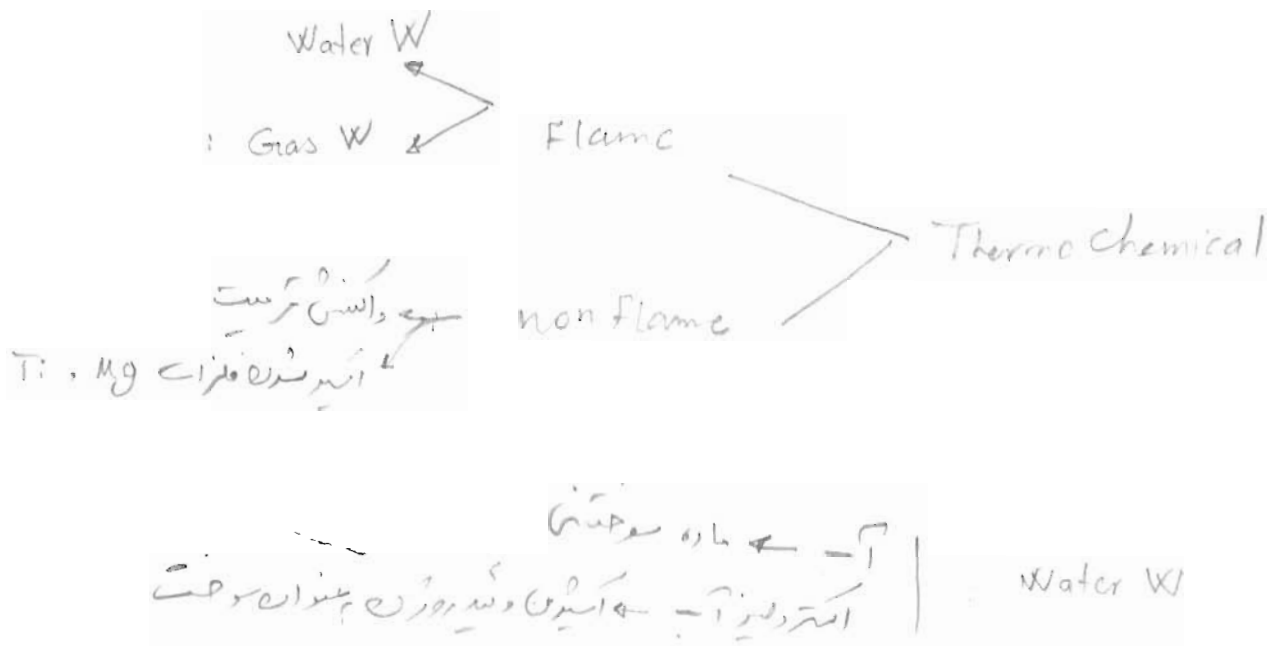 Water W
: Gas W
Flame
Thermo Chemical
non Flame
واکنش ترمیت
اکسید شدن فلزات Ti , Mg
Water W
آب ← ماده سوختنی
الکترولیز آب ← اکسیژن و هیدروژن به عنوان سوخت